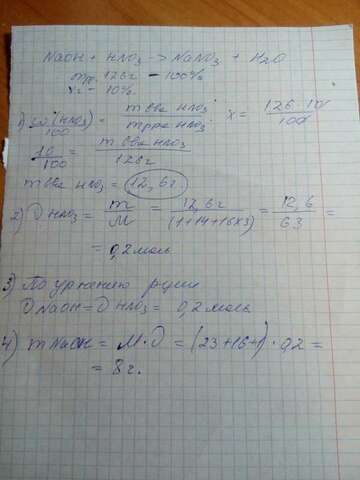 NaOH + HNO₃ → NaNO₃ + H₂O
mр. 126г — 100%
xг — 10%
1) ω(HNO₃)/100 = m в-ва HNO₃ / m р-ра HNO₃ x = 126·10/100
10/100 = m в-ва HNO₃ / 126г
m в-ва HNO₃ = 12,6г
2) ν HNO₃ = m/M = 12,6г/(1+14+16×3) = 12,6/63 =
= 0,2 моль
3) По урнению р-ции
ν NaOH = ν HNO₃ = 0,2 моль
4) m NaOH = M·ν = (23+16+1)·0,2 =
= 8г.